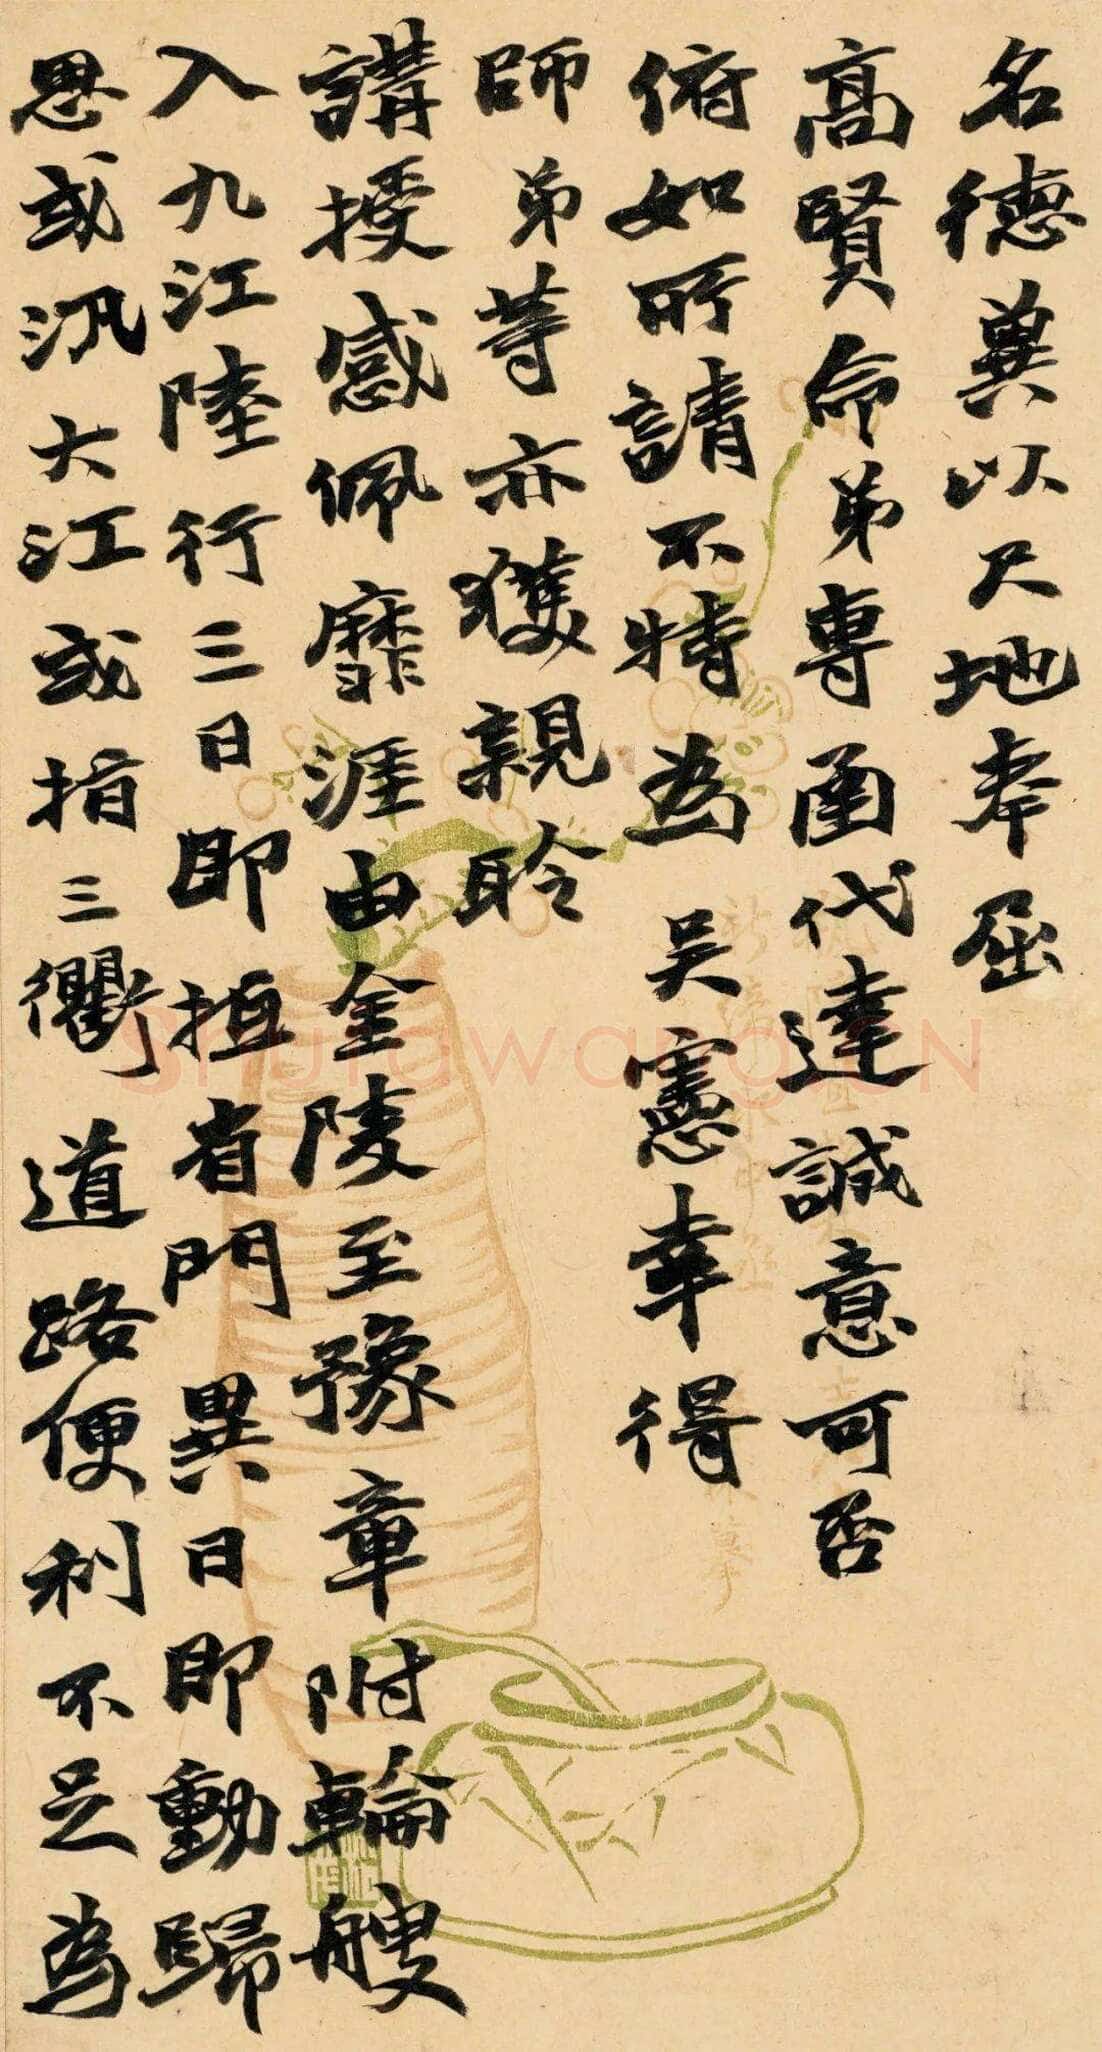 名德冀以尺地奉屈
高賢命弟專函代達誠意可否
俯如所請不特為吳憲幸得
師弟等亦獲親聆
講授感佩靡涯由金陵至豫章附輪艘
入九江陸行三日即抵省門異日即動歸
思或汎大江或指三衢道路便利不足為
Shufawang.CN